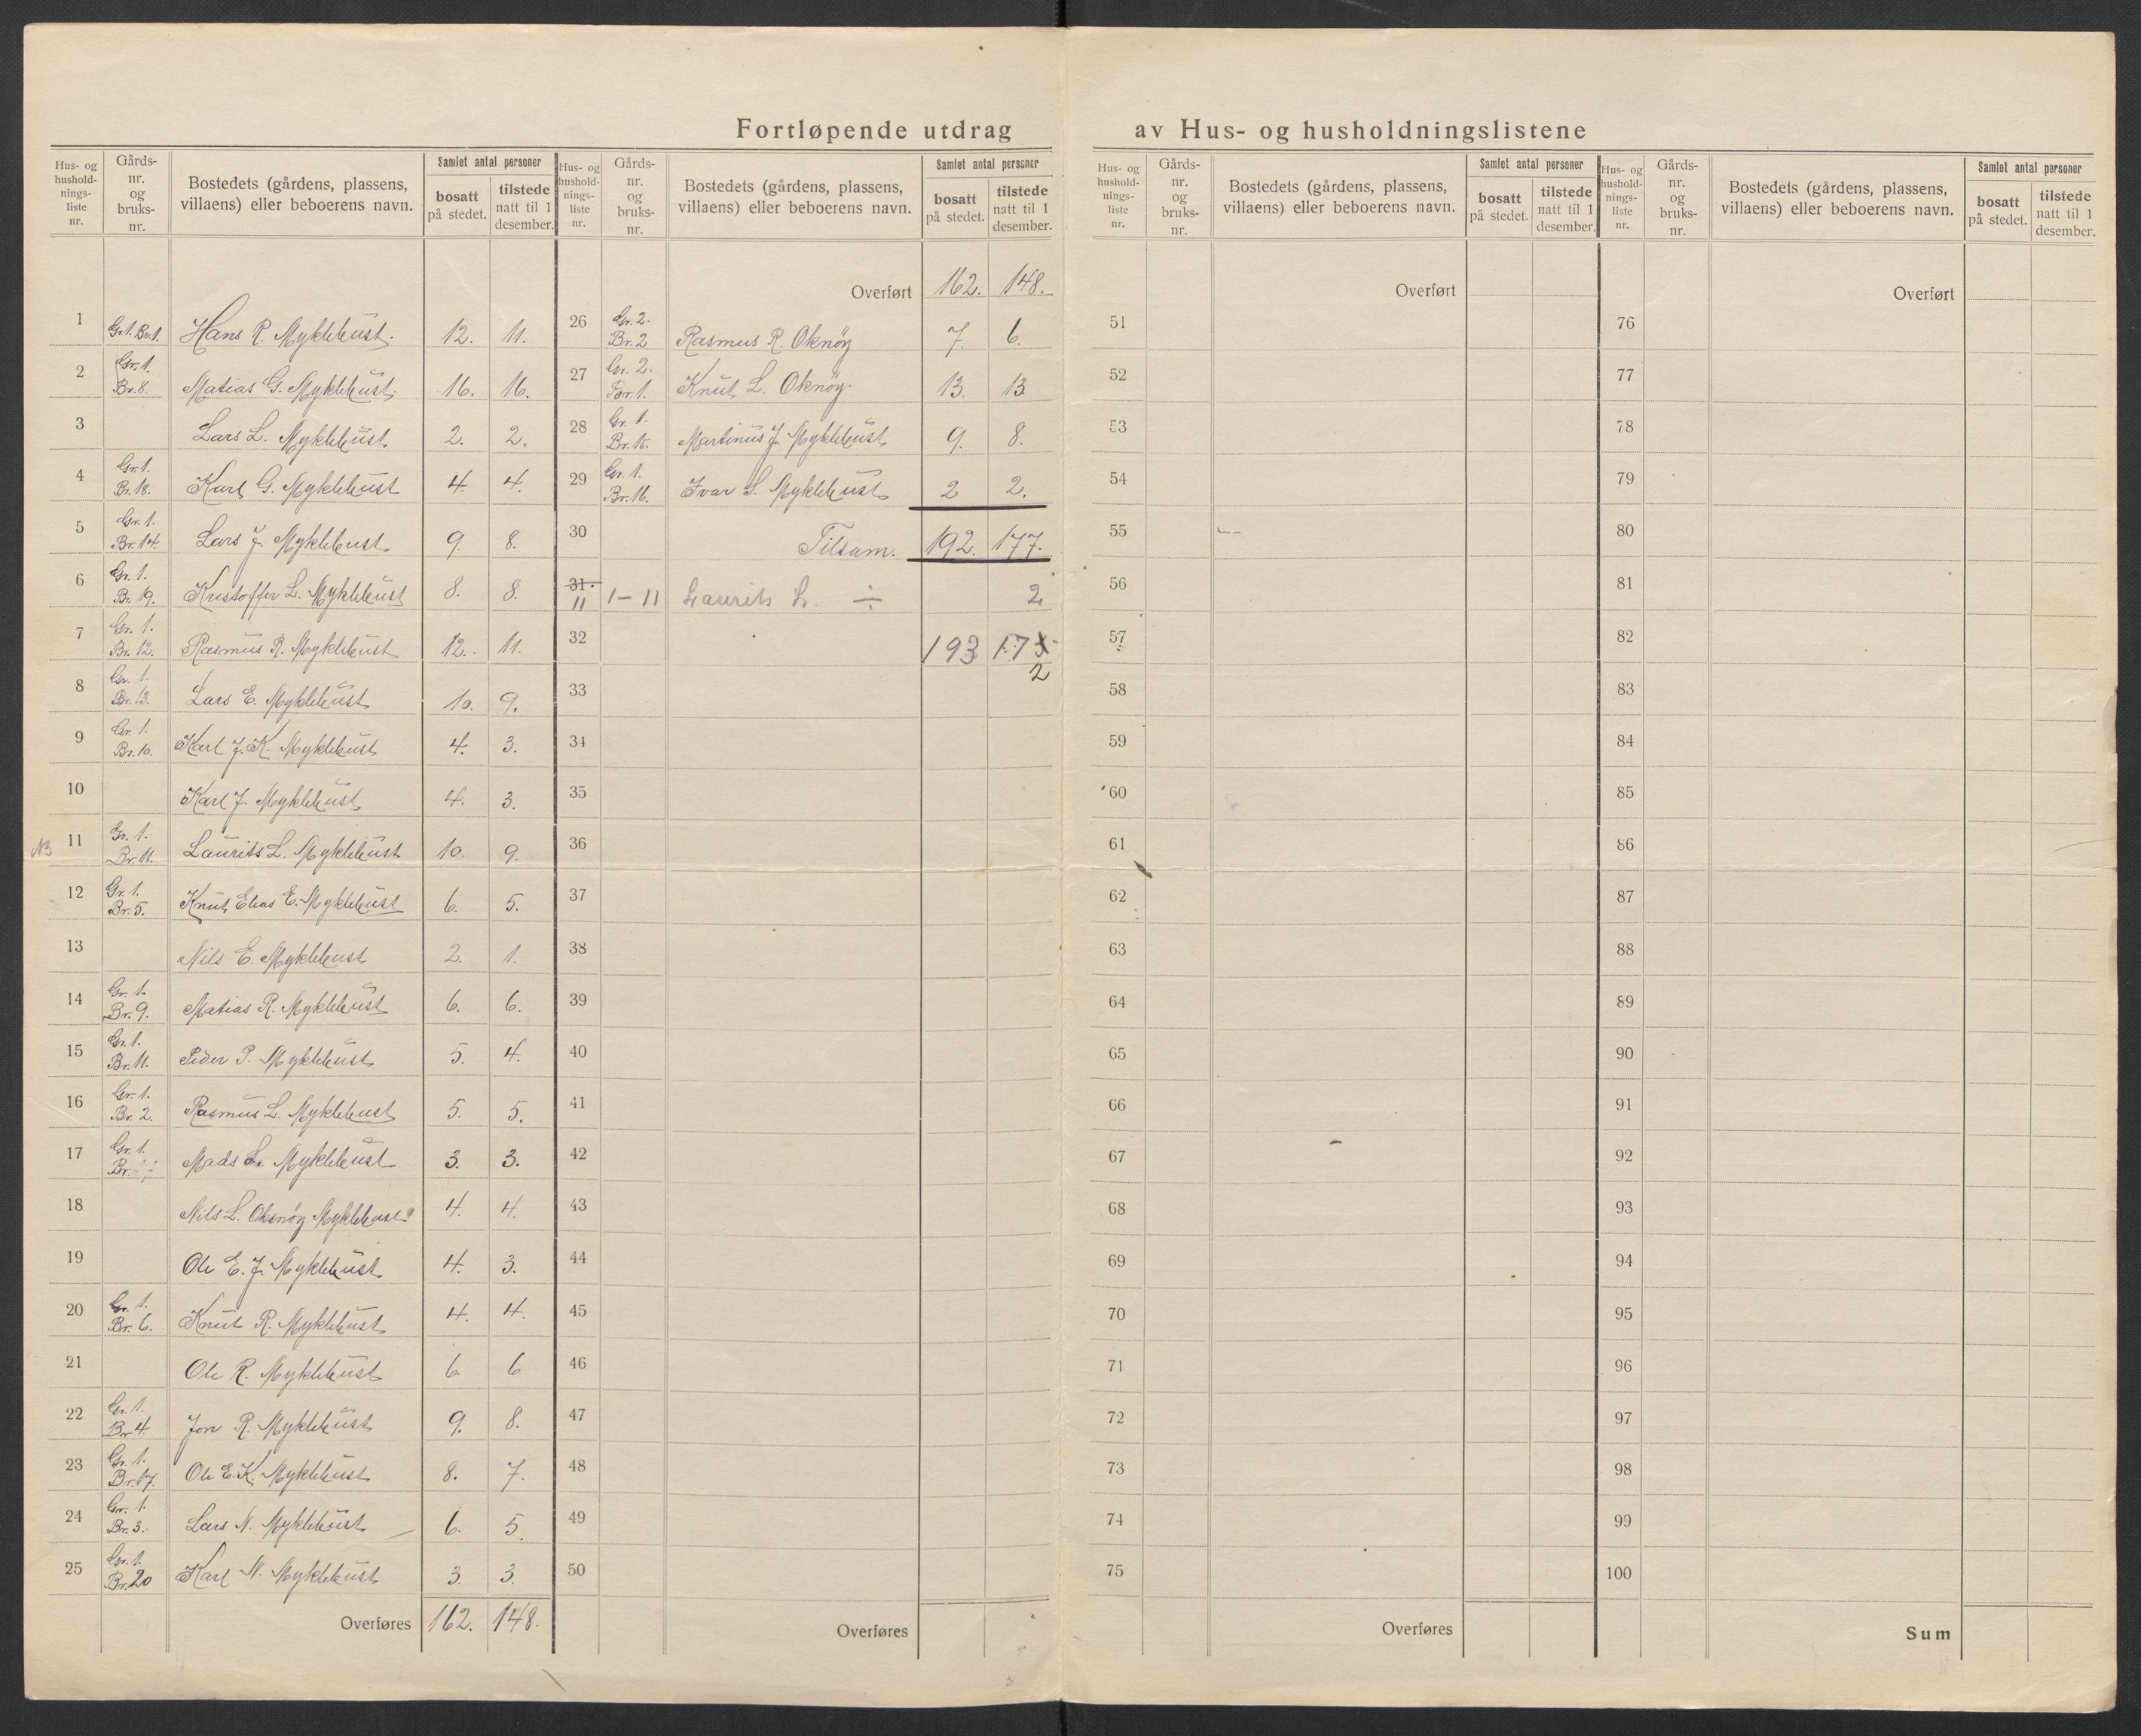 Fortløpende utdrag av Hus- og husholdningslistene
Hus- og hushold-nings-liste nr. | Gårds-nr. og bruks-nr. | Bostedets (gårdens, plassens, villaens) eller beboerens navn. | Samlet antal personer | bosatt på stedet. | tilstede natt til 1 desember.
1 Gr.1. Br.1. Hans R. Myklebust. 12. 11.
2 Gr.1. Br.8. Matias G. Myklebust. 16. 16.
3 Lars L. Myklebust 2. 2.
4 Gr.1. Br.18. Karl G. Myklebust 4. 4.
5 Gr.1. Br.14. Lars J. Myklebust 9. 8.
6 Gr.1. Br.19. Kristoffer L. Myklebust 8. 8.
7 Gr.1. Br.12. Rasmus R. Myklebust 12. 11.
8 Gr.1. Br.13. Lars E. Myklebust 10. 9.
9 Gr.1. Br.10. Karl J. K. Myklebust 4. 3.
10 Karl J. Myklebust 4. 3.
NB 11 Gr.1. Br.11. Laurits L. Myklebust 10. 9.
12 Gr.1. Br.5. Knut Elias E. Myklebust 6. 5.
13 Nils E. Myklebust 2. 1.
14 Gr.1. Br.9. Matias R. Myklebust 6. 6.
15 Gr.1. Br.11. Peder P. Myklebust 5. 4.
16 Gr.1. Br.2. Rasmus L. Myklebust 5. 5.
17 Gr.1. Br. Mads L. Myklebust 3. 3.
18 Nils L. Oksnøy Myklebust 4. 4.
19 Ole E. J. Myklebust 4. 3.
20 Gr.1. Br.6. Knut R. Myklebust 4. 4.
21 Ole R. Myklebust 6. 6
22 Gr.1. Br.4 Jon R. Myklebust 9. 8.
23 Gr.1. Br.17. Ole E. K. Myklebust 8. 7.
24 Gr.1. Br.3. Lars N. Myklebust 6. 5.
25 Gr.1. Br.20 Karl N. Myklebust 3. 3.
Overføres 162. 148.
Hus- og hushold-nings-liste nr. | Gårds-nr. og bruks-nr. | Bostedets (gårdens, plassens, villaens) eller beboerens navn. | Samlet antal personer | bosatt på stedet. | tilstede natt til 1 desember.
Overført 162. 148.
26 Gr.2. Br.2 Rasmus R. Oknøy 7. 6.
27 Gr.2. Br.1. Knut L. Oknøy. 13. 13
28 Gr.1. Br.15. Martinus J. Myklebust 9. 8.
29 Gr.1. Br.16. Ivar S. Myklebust 2 2.
30 Tilsam. 192. 177.
31. 11 1-11 Laurits L. ÷ 2
32 193 173 2
33
34
35
36
37
38
39
40
41
42
43
44
45
46
47
48
49
50
Overføres
Hus- og hushold-nings-liste nr. | Gårds-nr. og bruks-nr. | Bostedets (gårdens, plassens, villaens) eller beboerens navn. | Samlet antal personer | bosatt på stedet. | tilstede natt til 1 desember.
Overført
51
52
53
54
55
56
57
58
59
60
61
62
63
64
65
66
67
68
69
70
71
72
73
74
75
Overføres
Hus- og hushold-nings-liste nr. | Gårds-nr. og bruks-nr. | Bostedets (gårdens, plassens, villaens) eller beboerens navn. | Samlet antal personer | bosatt på stedet. | tilstede natt til 1 desember.
Overført
76
77
78
79
80
81
82
83
84
85
86
87
88
89
90
91
92
93
94
95
96
97
98
99
100
Sum